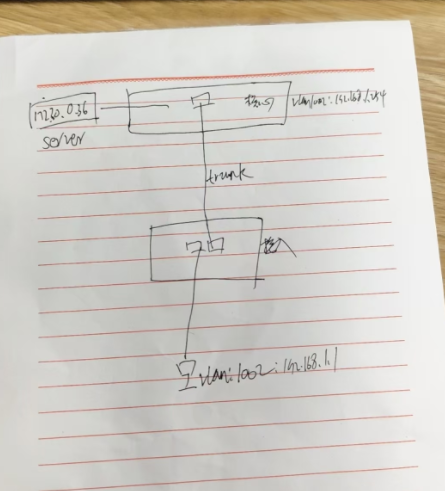 172.30.0.36
server
核心
vlan1002:192.168.1.254
trunk
接入
vlan:1002:192.168.1.1